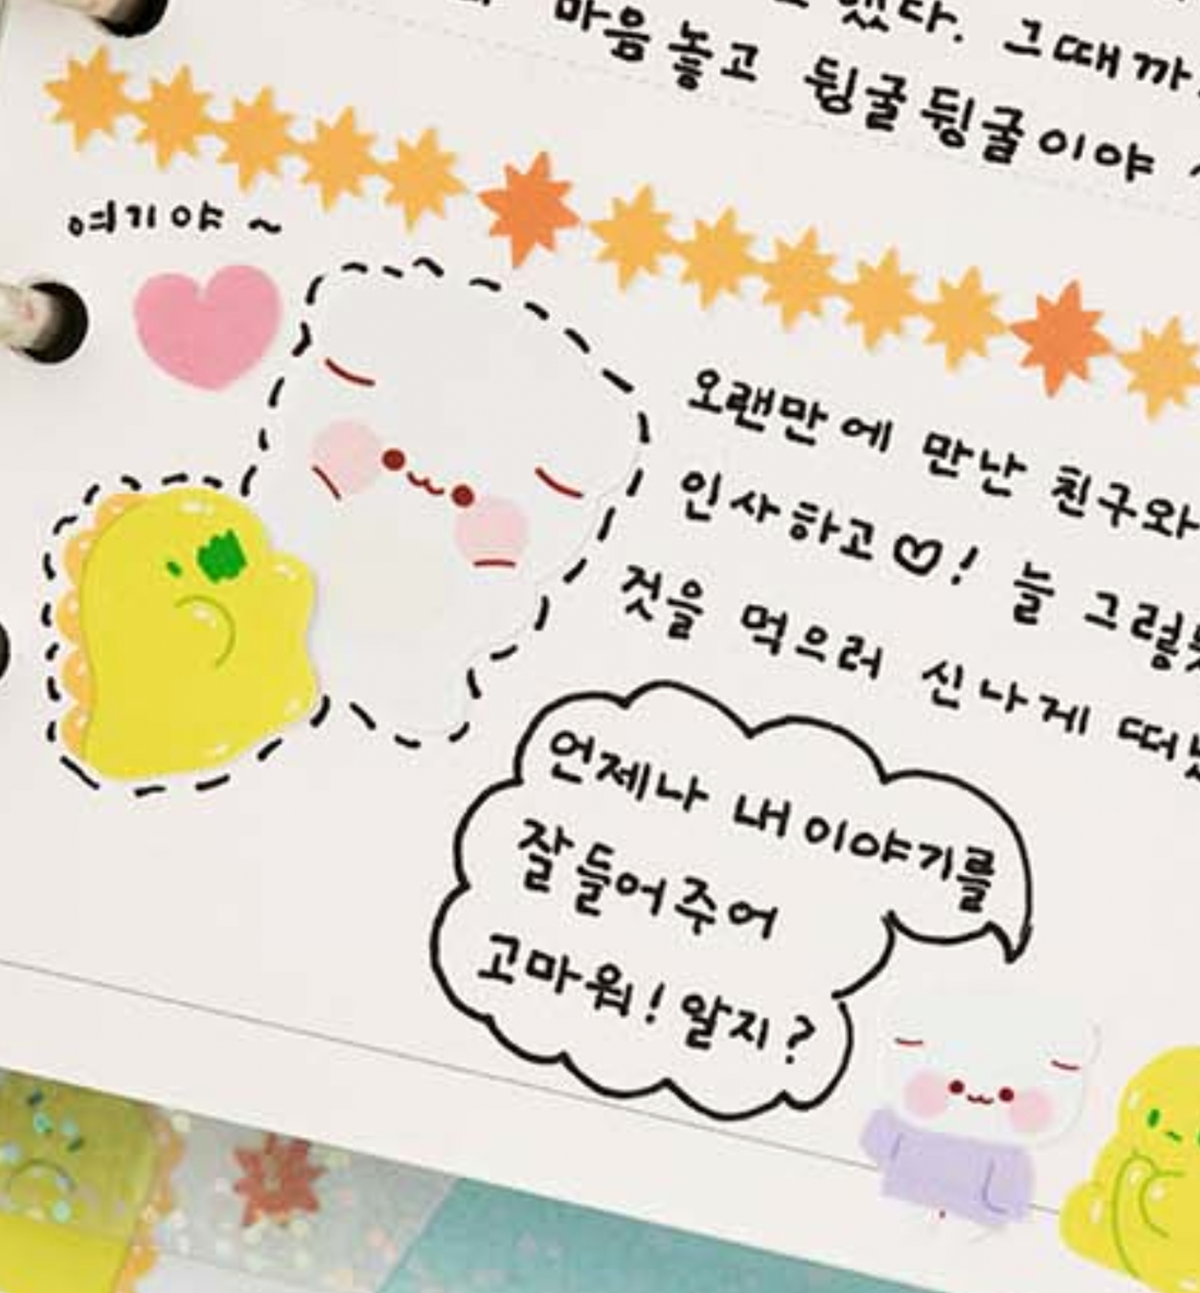 했다. 그때까
마음놓고 뒹굴뒹굴이야
여기야~
오랜만에 만난 친구와
인사하고♡! 늘 그렇듯
것을 먹으러 신나게 떠났
언제나 내 이야기를
잘 들어주어
고마워! 알지?